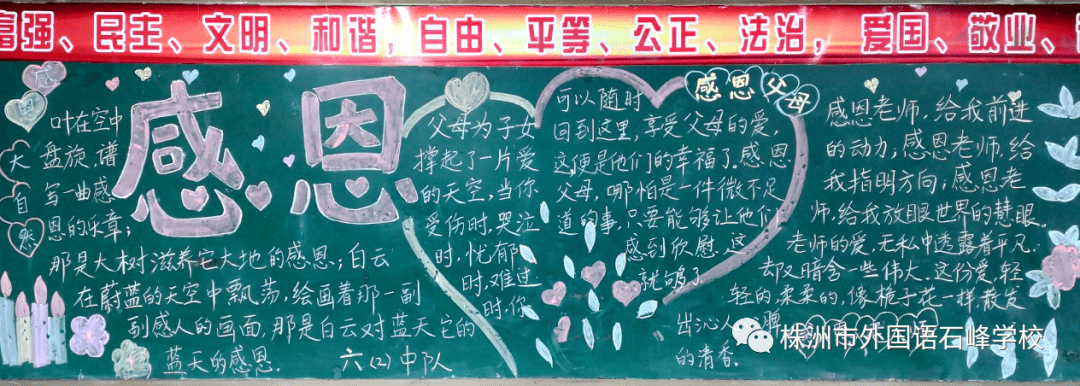 富强、民主、文明、和谐，自由、平等、公正、法治， 爱国、敬业、
感恩
大自然
感恩
叶在空中
盘旋，谱
写一曲感
恩的乐章；
那是大树滋养它大地的感恩；白云
在蔚蓝的天空中飘荡，绘画着那一副
副感人的画面，那是白云对蓝天它的
蓝天的感恩.
六(2)中队
父母为子女
撑起了一片爱
的天空，当你
受伤时，哭泣
时，忧郁
时，难过
时，你
可以随时
回到这里，享受父母的爱，
这便是他们的幸福了。感恩
父母，哪怕是一件微不足
道的事，只要能够让他们
感到欣慰，这
就够了
感恩父母
感恩老师，给我前进
的动力，感恩老师，给
我指明方向；感恩老
师，给我放眼世界的慧眼。
老师的爱，无私中透露着平凡，
却又暗含一些伟大，这份爱，轻
轻的，柔柔的，像栀子花一样，散发
出沁人
脾
的清香。
株洲市外国语石峰学校